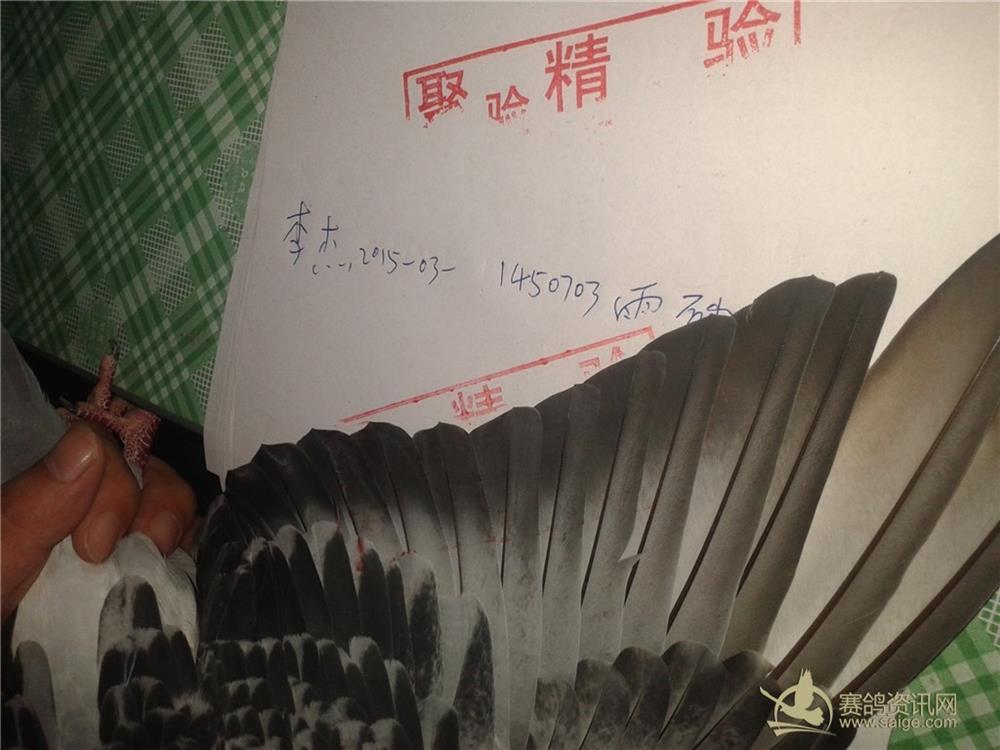 聚验精 验
李杰 2015-03- 1450703 雨
精 验
赛鸽资讯网
www.saige.com